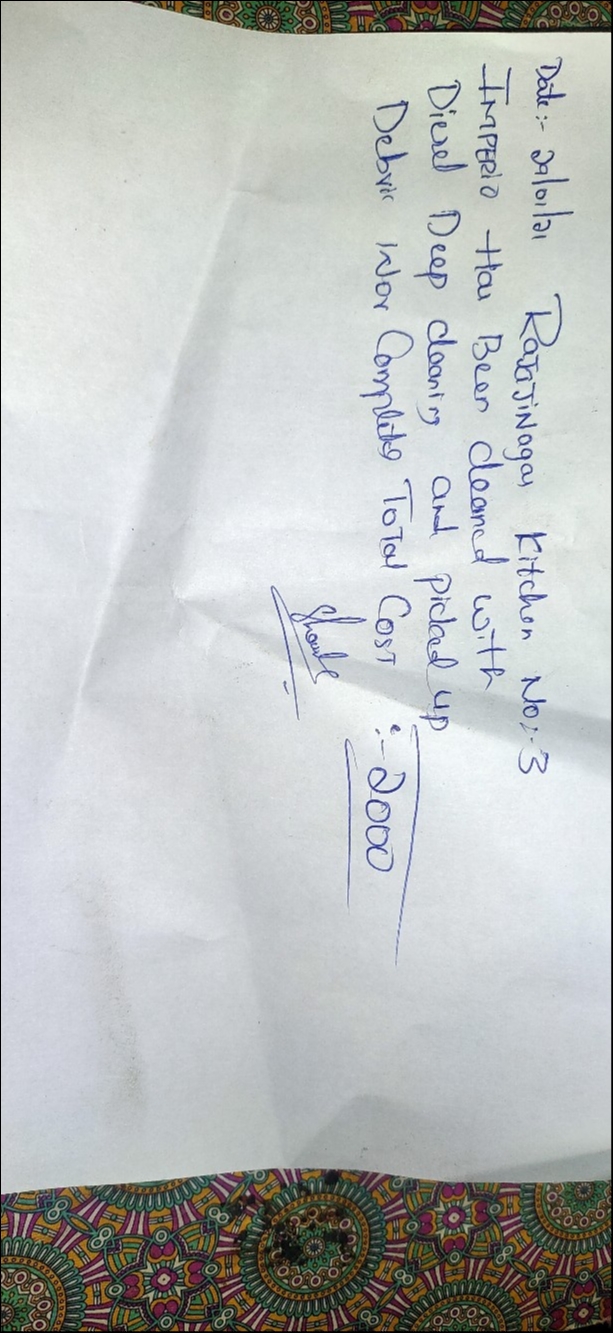 Date:- 29/01/21 RAJAJINagar Kitchen No:-3
IMPERIO Has Been cleaned with
Diesel Deep cleaning and picked up
Debris Wor Complite Total Cost :- 2000